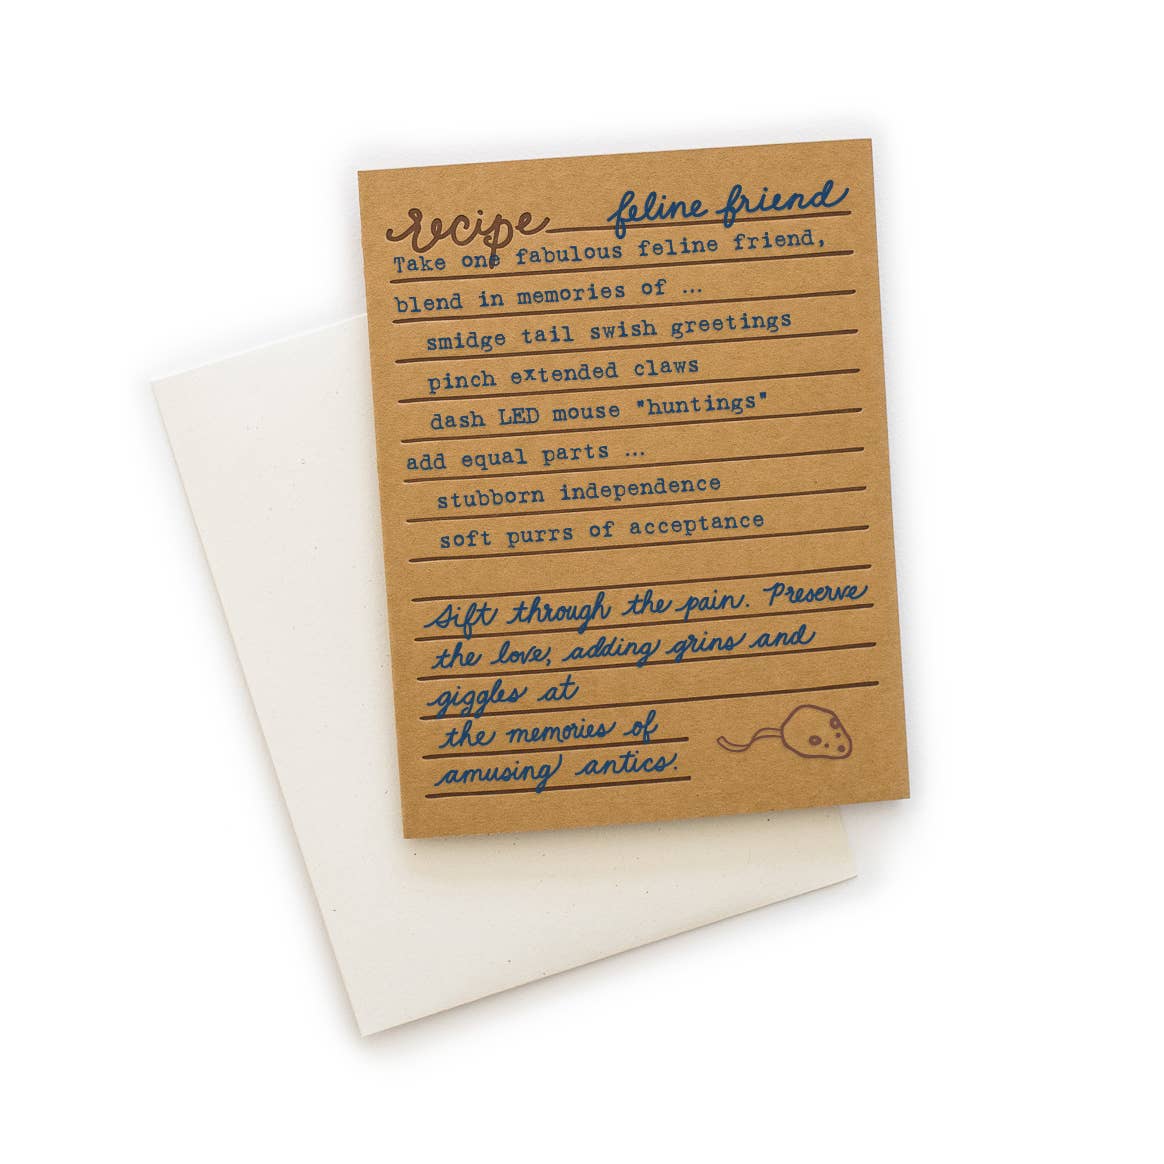 recipe feline friend
Take one fabulous feline friend,
blend in memories of ...
smidge tail swish greetings
pinch extended claws
dash LED mouse "huntings"
add equal parts ...
stubborn independence
soft purrs of acceptance
Sift through the pain. Preserve
the love, adding grins and
giggles at
the memories of
amusing antics.